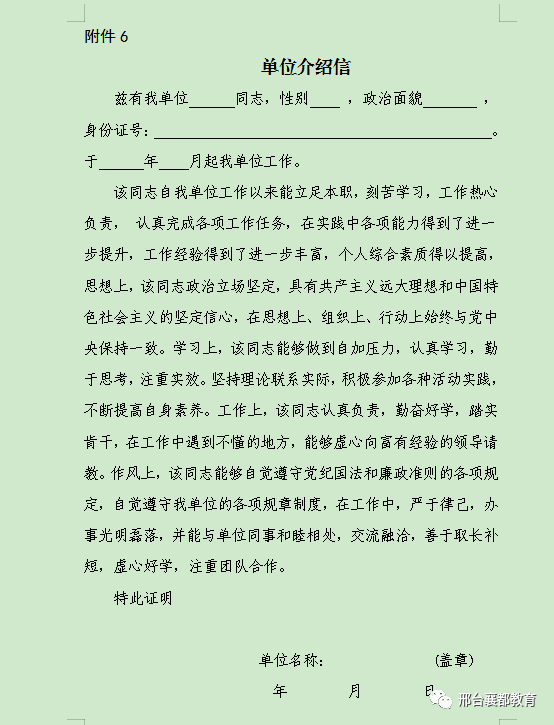 附件6
单位介绍信
兹有我单位______同志，性别____ ，政治面貌_______ ，
身份证号：____________________________________________。
于______年____月起我单位工作。
该同志自我单位工作以来能立足本职，刻苦学习，工作热心
负责， 认真完成各项工作任务，在实践中各项能力得到了进一
步提升，工作经验得到了进一步丰富，个人综合素质得以提高，
思想上，该同志政治立场坚定，具有共产主义远大理想和中国特
色社会主义的坚定信心，在思想上、组织上、行动上始终与党中
央保持一致。学习上，该同志能够做到自加压力，认真学习，勤
于思考，注重实效。坚持理论联系实际，积极参加各种活动实践，
不断提高自身素养。工作上，该同志认真负责，勤奋好学，踏实
肯干，在工作中遇到不懂的地方，能够虚心向富有经验的领导请
教。作风上，该同志能够自觉遵守党纪国法和廉政准则的各项规
定，自觉遵守我单位的各项规章制度，在工作中，严于律己，办
事光明磊落，并能与单位同事和睦相处，交流融洽，善于取长补
短，虚心好学，注重团队合作。
特此证明
单位名称： (盖章)
年 月 日
邢台襄都教育